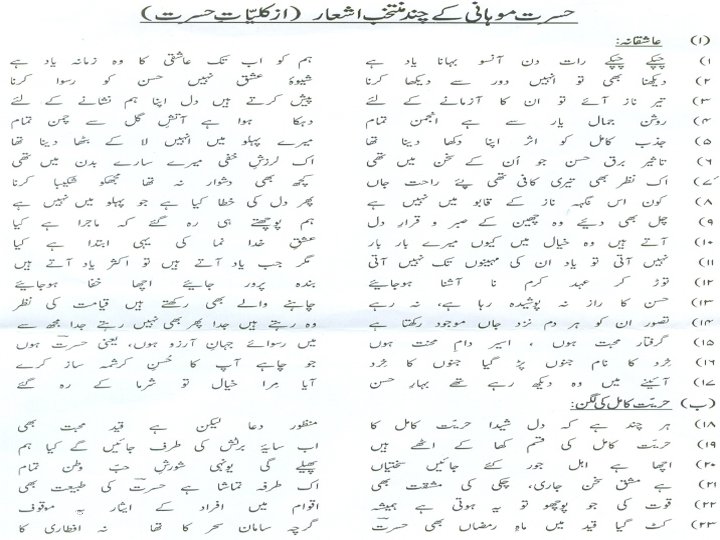 حسرت موہانی کے چند منتخب اشعار (از کلیّاتِ حسرت)
(۱) عاشقانہ:
۱) چپکے چپکے رات دن آنسو بہانا یاد ہے ہم کو اب تک عاشقی کا وہ زمانہ یاد ہے
۲) دیکھنا بھی تو انہیں دور سے دیکھا کرنا شیوۂ عشق نہیں حسن کو رسوا کرنا
۳) تیر ناز آئے تو ان کا آزمانے کے لئے پیش کرتے ہیں دل اپنا ہم نشانے کے لئے
۴) روشن جمال یار سے ہے انجمن تمام دہکا ہوا ہے آتش گل سے چمن تمام
۵) جذب کامل کو اثر اپنا دکھا دینا تھا میرے پہلو میں انہیں لا کے بٹھا دینا تھا
۶) تاثیر برق حسن جو اُن کے سخن میں تھی اک لرزش خفی میرے سارے بدن میں تھی
۷) اک نظر بھی تیری کافی تھی پئے راحت جاں کچھ بھی دشوار نہ تھا مجھکو شکیبا کرنا
۸) کون اس نگہہ ناز کے قابو میں نہیں ہے پھر دل کی خطا کیا ہے جو پہلو میں نہیں ہے
۹) چل بھی دیے وہ چھین کے صبر و قرار دل ہم پوچھتے ہی رہ گئے کہ ماجرا ہے کیا
۱۰) آتے ہیں وہ خیال میں کیوں میرے بار بار عشق خدا نما کی یہی ابتدا ہے کیا
۱۱) نہیں آتی تو یاد ان کی مہینوں تک نہیں آتی مگر جب یاد آتے ہیں تو اکثر یاد آتے ہیں
۱۲) توڑ کر عہد کرم نا آشنا ہوجائیے بندہ پرور جایئے اچھا خفا ہوجایئے
۱۳) حسن کا راز نہ پوشیدہ رہا ہے، نہ رہے چاہنے والے بھی رکھتے ہیں قیامت کی نظر
۱۴) تصور ان کو ہر دم نزد جاں موجود رکھتا ہے وہ رہتے ہیں جدا پھر بھی نہیں رہتے جدا مجھ سے
۱۵) گرفتار محبت ہوں ، اسیر دام محنت ہوں میں رسوائے جہان آرزو ہوں، یعنی حسرت ہوں
۱۶) خرد کا نام جنوں پڑ گیا جنوں کا خرد جو چاہے آپ کا حُسنِ کرشمہ ساز کرے
۱۷) آئینے میں وہ دیکھ رہے تھے بہار حسن آیا مرا خیال تو شرما کے رہ گئے
(ب) حرّیت کامل کی لگن:
۱۸) ہر چند ہے کہ دل شیدا حریّت کامل کا منظور دعا لیکن ہے قید محبت بھی
۱۹) حریّت کامل کی قسم کھا کے اٹھے ہیں اب سایۂ برٹش کی طرف جائیں گے کیا ہم
۲۰) اچھا ہے اہل جور کئے جائیں سختیاں پھیلے گی یونہی شورش حبّ وطن تمام
۲۱) ہے مشق سخن جاری، چکی کی مشقت بھی اک طرفہ تماشا ہے حسرت کی طبیعت بھی
۲۲) قوت کی جو پوچھو تو یہ ہوتی ہے ہمیشہ اقوام میں افراد کے ایثار پہ موقوف
۲۳) کٹ گیا قید میں ماہِ رمضاں بھی حسرت گرچہ سامان سحر کا تھا نہ افطاری کا